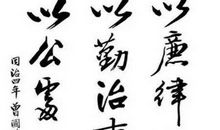 以廉律
以勤治事
以公處
同治四年曾國